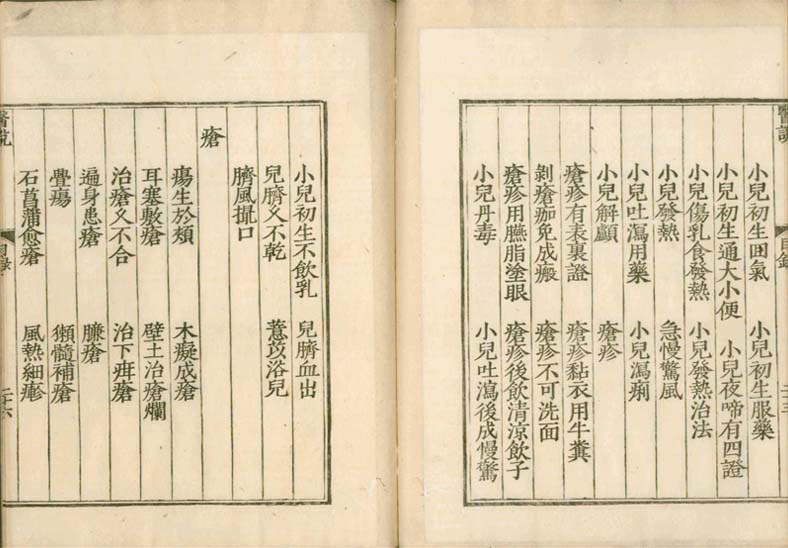 醫說
目錄
二十三
小兒初生囬氣　小兒初生服藥
小兒初生通大小便　小兒夜啼有四證
小兒傷乳食發熱　小兒發熱治法
小兒發熱　急慢驚風
小兒吐瀉用藥　小兒瀉痢
小兒解顱　瘡疹
瘡疹有表裏證　瘡疹黏衣用牛糞
剝瘡痂免成瘢　瘡疹不可洗面
瘡疹用臙脂塗眼　瘡疹後飲清涼飲子
小兒丹毒　小兒吐瀉後成慢驚
小兒初生不飲乳　兒臍血出
兒臍久不乾　薏苡浴兒
臍風撮口
瘡
瘍生於頰　木癡成瘡
耳塞敷瘡　壁土治瘡爛
治瘡久不合　治下疰瘡
遍身患瘡　臁瘡
疊瘍　獺髓補瘡
石菖蒲愈瘡　風熱細疹
醫說
目錄
二十六